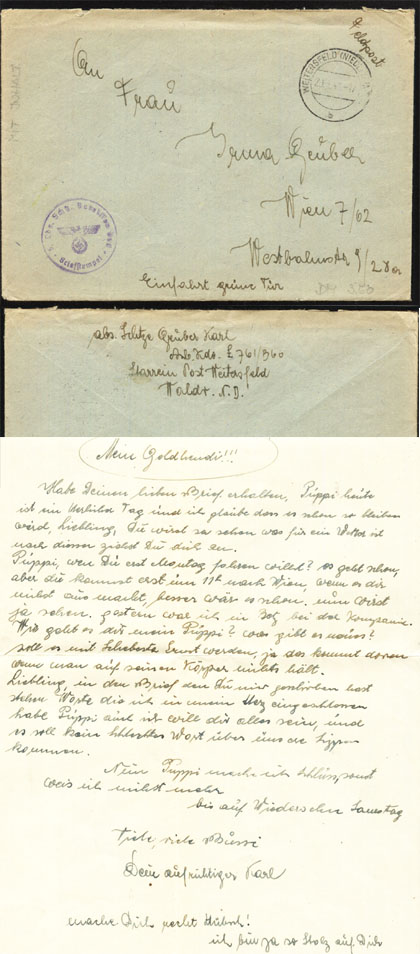 Feldpost
An
Frau
WEITERSFELD (NIED
Irma Gruber
Wien 7/62
Westbahnstr 9/2
Einfahrt grüne Tür
MIT INHALT
Briefstempel
abs. Schütze Gruber Karl
Arb. Kdo. E 761/360
Starrein Post Weitersfeld
Waldv. N.D.
Mein Goldhendi!!!
Habe Deinen lieben Brief erhalten, Puppi heute
ist ein herrlicher Tag und ich glaube dass es schon so bleiben
wird, Liebling, Du wirst ja sehen was für ein Wetter ist
nach diesem ziehst Du dich an.
Puppi, wen Du erst Montag fahren willst? es geht schon,
aber du kommst erst um 11h nach Wien, wenn es dir
nichts aus macht, besser wär es schon. nun wirst
ja sehen. gestern war ich in bei der Kompanie.
Wie geht es dir mein Puppi? was gibt es neues?
soll es mit Ernst werden, ja das kommt davon
wenn man auf seinen Körper nichts hält.
Liebling, in den Brief den Du mir geschrieben hast
stehen Worte die ich in mein Herz eingeschlossen
habe Puppi auch ich will dir alles sein, und
es soll kein schlechtes Wort über unsere Lippen
kommen.
Nun Puppi mache ich Schluss, sonst
weis ich nichts mehr
bis auf Wiedersehn Samstag
viele, viele Bussi
Dein aufrichtiger Karl
mache Dich recht Hübsch!
ich bin ja so Stolz auf Dich